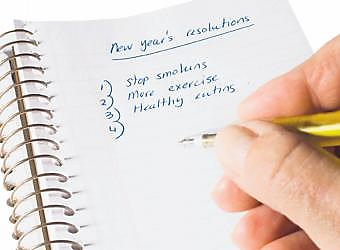 New year's resolutions
1) Stop smoking
2) More exercise
3) Healthy eating
4)